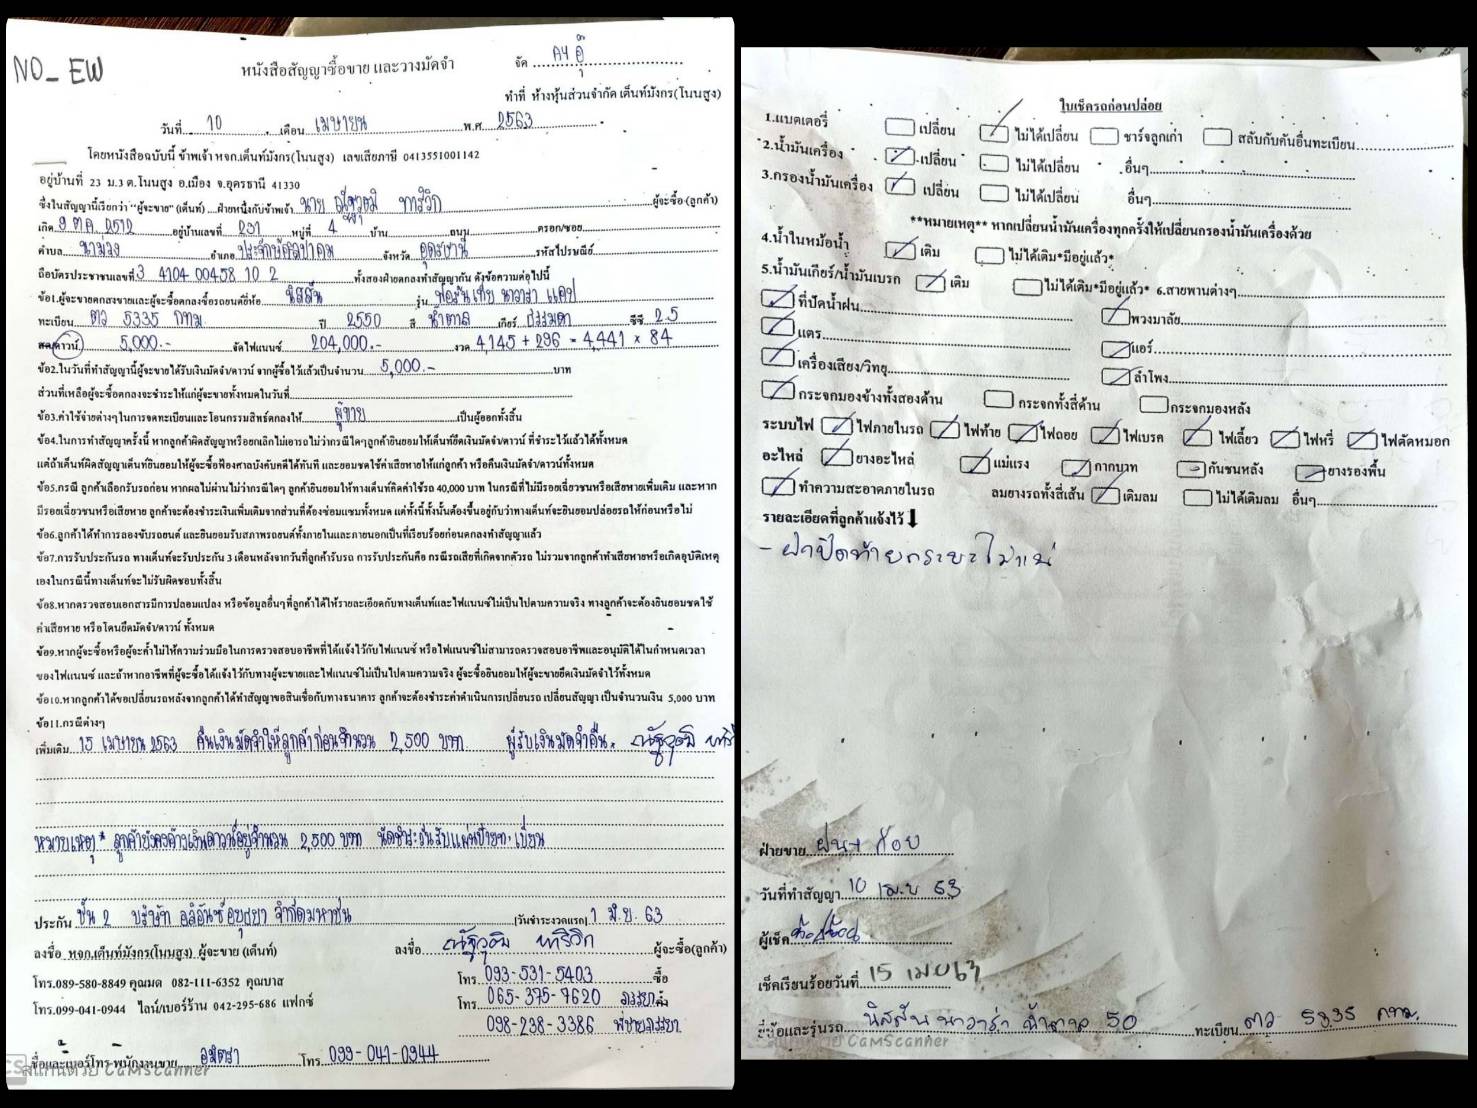 NO_EW
หนังสือสัญญาซื้อขาย และวางมัดจำ
จัด AY อุ๊
ทำที่ ห้างหุ้นส่วนจำกัด เต็นท์มังกร(โนนสูง)
วันที่ 10 เดือน เมษายน พ.ศ 2563
โดยหนังสือฉบับนี้ ข้าพเจ้า หจก.เต็นท์มังกร(โนนสูง) เลขเสียภาษี 0413551001142
อยู่บ้านที่ 23 ม.3 ต.โนนสูง อ.เมือง จ.อุดรธานี 41330
ซึ่งในสัญญานี้เรียกว่า "ผู้จะขาย" (เต็นท์) ฝ่ายหนึ่งกับข้าพเจ้า นาย ณัฐวุฒิ ผู้จะซื้อ(ลูกค้า)
เกิด 9 ต.ค. 2512 อยู่บ้านเลขที่ 231 หมู่ที่ 4 บ้าน ถนน ตรอก/ซอย
ตำบล นาม่วง อำเภอ ประจักษ์ศิลปาคม จังหวัด อุดรธานี รหัสไปรษณีย์
ถือบัตรประชาชนเลขที่ 3 4104 00458 10 2 ทั้งสองฝ่ายตกลงทำสัญญากัน ดังข้อความต่อไปนี้
ข้อ1.ผู้จะขายตกลงขายและผู้จะซื้อตกลงซื้อรถยนต์ยี่ห้อ นิสสัน รุ่น ฟรอนเทีย นาวาร่า แคป
ทะเบียน ตว 5335 กทม. ปี 2550 สี น้ำตาล เกียร์ ธรรมดา ซีซี 2.5
สด/ดาวน์ 5,000.- จัดไฟแนนซ์ 204,000.- งวด 4,145 + 296 = 4,441 x 84
ข้อ2.ในวันที่ทำสัญญานี้ผู้จะขายได้รับเงินมัดจำ/ดาวน์ จากผู้ซื้อไว้แล้วเป็นจำนวน 5,000.- บาท
ส่วนที่เหลือผู้จะซื้อตกลงจะชำระให้แก่ผู้จะขายทั้งหมดในวันที่
ข้อ3.ค่าใช้จ่ายต่างๆในการจดทะเบียนและโอนกรรมสิทธ์ตกลงให้ ผู้ขาย เป็นผู้ออกทั้งสิ้น
ข้อ4.ในการทำสัญญาครั้งนี้ หากลูกค้าผิดสัญญาหรือยกเลิกไม่เอารถไม่ว่ากรณีใดๆลูกค้ายินยอมให้เต็นท์ยึดเงินมัดจำ/ดาวน์ ที่ชำระไว้แล้วได้ทั้งหมด
แต่ถ้าเต็นท์ผิดสัญญาเต็นท์ยินยอมให้ผู้จะซื้อฟ้องศาลบังคับคดีได้ทันที และยอมชดใช้ค่าเสียหายให้แก่ลูกค้า หรือคืนเงินมัดจำ/ดาวน์ทั้งหมด
ข้อ5.กรณี ลูกค้าเลือกรับรถก่อน หากผลไม่ผ่านไม่ว่ากรณีใดๆ ลูกค้ายินยอมให้ทางเต็นท์คิดค่าใช้รถ 40,000 บาท ในกรณีที่ไม่มีรอยเฉี่ยวชนหรือเสียหายเพิ่มเติม และหาก
มีรอยเฉี่ยวชนหรือเสียหาย ลูกค้าจะต้องชำระเงินเพิ่มเติมจากส่วนที่ต้องซ่อมแซมทั้งหมด แต่ทั้งนี้ทั้งนั้นต้องขึ้นอยู่กับว่าทางเต็นท์จะยินยอมปล่อยรถให้ก่อนหรือไม่
ข้อ6.ลูกค้าได้ทำการลองขับรถยนต์ และยินยอมรับสภาพรถยนต์ทั้งภายในและภายนอกเป็นที่เรียบร้อยก่อนตกลงทำสัญญาแล้ว
ข้อ7.การรับประกันรถ ทางเต็นท์จะรับประกัน 3 เดือนหลังจากวันที่ลูกค้ารับรถ การรับประกันคือ กรณีรถเสียที่เกิดจากตัวรถ ไม่รวมจากลูกค้าทำเสียหายหรือเกิดอุบัติเหตุ
เองในกรณีนี้ทางเต็นท์จะไม่รับผิดชอบทั้งสิ้น
ข้อ8.หากตรวจสอบเอกสารมีการปลอมแปลง หรือข้อมูลอื่นๆที่ลูกค้าได้ให้รายละเอียดกับทางเต็นท์และไฟแนนซ์ไม่เป็นไปตามความจริง ทางลูกค้าจะต้องยินยอมชดใช้
ค่าเสียหาย หรือโดนยึดมัดจำ/ดาวน์ ทั้งหมด
ข้อ9.หากผู้จะซื้อหรือผู้จะค้ำไม่ให้ความร่วมมือในการตรวจสอบอาชีพที่ได้แจ้งไว้กับไฟแนนซ์ หรือไฟแนนซ์ไม่สามารถตรวจสอบอาชีพและอนุมัติได้ในกำหนดเวลา
ของไฟแนนซ์ และถ้าหากอาชีพที่ผู้จะซื้อได้แจ้งไว้กับทางผู้จะขายและไฟแนนซ์ไม่เป็นไปตามความจริง ผู้จะซื้อยินยอมให้ผู้จะขายยึดเงินมัดจำไว้ทั้งหมด
ข้อ10.หากลูกค้าได้ขอเปลี่ยนรถหลังจากลูกค้าได้ทำสัญญาขอสินเชื่อกับทางธนาคาร ลูกค้าจะต้องชำระค่าดำเนินการเปลี่ยนรถ เปลี่ยนสัญญา เป็นจำนวนเงิน 5,000 บาท
ข้อ11.กรณีต่างๆ
เพิ่มเติม 15 เมษายน 2563 คืนเงินมัดจำให้ลูกค้าก่อนจำนวน 2,500 บาท ผู้รับเงินมัดจำคืน ณัฐวุฒิ
หมายเหตุ* ลูกค้ายังคงค้างเงินดาวน์อยู่จำนวน 2,500 บาท นัดชำระวันรับแผ่นป้ายทะเบียน
ประกัน ชั้น 2 บริษัท อลิอันซ์อยุธยา จำกัดมหาชน (วันชำระงวดแรก) 1 มิ.ย. 63
ลงชื่อ หจก.เต็นท์มังกร(โนนสูง) ผู้จะขาย (เต็นท์) ลงชื่อ ณัฐวุฒิ ผู้จะซื้อ(ลูกค้า)
โทร.089-580-8849 คุณมด 082-111-6352 คุณบาส โทร 093-531-5403 ซื้อ
โทร.099-041-0944 ไลน์/เบอร์ร้าน 042-295-686 แฟกซ์ โทร 065-375-7620 ภรรยา ค้ำ
098-238-3386 พี่ชายภรรยา
ชื่อและเบอร์โทร พนักงานขาย โทร. 099-041-0944
CS สแกนด้วย CamScanner
ใบเช็ครถก่อนปล่อย
1.แบตเตอรี่ เปลี่ยน ไม่ได้เปลี่ยน ชาร์จลูกเก่า สลับกับคันอื่นทะเบียน
2.น้ำมันเครื่อง เปลี่ยน ไม่ได้เปลี่ยน อื่นๆ
3.กรองน้ำมันเครื่อง เปลี่ยน ไม่ได้เปลี่ยน อื่นๆ
**หมายเหตุ** หากเปลี่ยนน้ำมันเครื่องทุกครั้งให้เปลี่ยนกรองน้ำมันเครื่องด้วย
4.น้ำในหม้อน้ำ เติม ไม่ได้เติม*มีอยู่แล้ว*
5.น้ำมันเกียร์/น้ำมันเบรค เติม ไม่ได้เติม*มีอยู่แล้ว* 6.สายพานต่างๆ
ที่ปัดน้ำฝน พวงมาลัย
แตร แอร์
เครื่องเสียง/วิทยุ ลำโพง
กระจกมองข้างทั้งสองด้าน กระจกทั้งสี่ด้าน กระจกมองหลัง
ระบบไฟ ไฟภายในรถ ไฟท้าย ไฟถอย ไฟเบรค ไฟเลี้ยว ไฟหรี่ ไฟตัดหมอก
อะไหล่ ยางอะไหล่ แม่แรง กากบาท กันชนหลัง ยางรองพื้น
ทำความสะอาดภายในรถ ลมยางรถทั้งสี่เส้น เติมลม ไม่ได้เติมลม อื่นๆ
รายละเอียดที่ลูกค้าแจ้งไว้
- ฝาปิดท้ายกระบะไม่แน่
ฝ่ายขาย ฝน + ก้อย
วันที่ทำสัญญา 10 เม.ย 63
ผู้เช็ค
เช็คเรียบร้อยวันที่ 15 เมย 63
ยี่ห้อและรุ่นรถ นิสสัน นาวาร่า น้ำตาล 50 ทะเบียน ตว 5335 กทม.
CamScanner